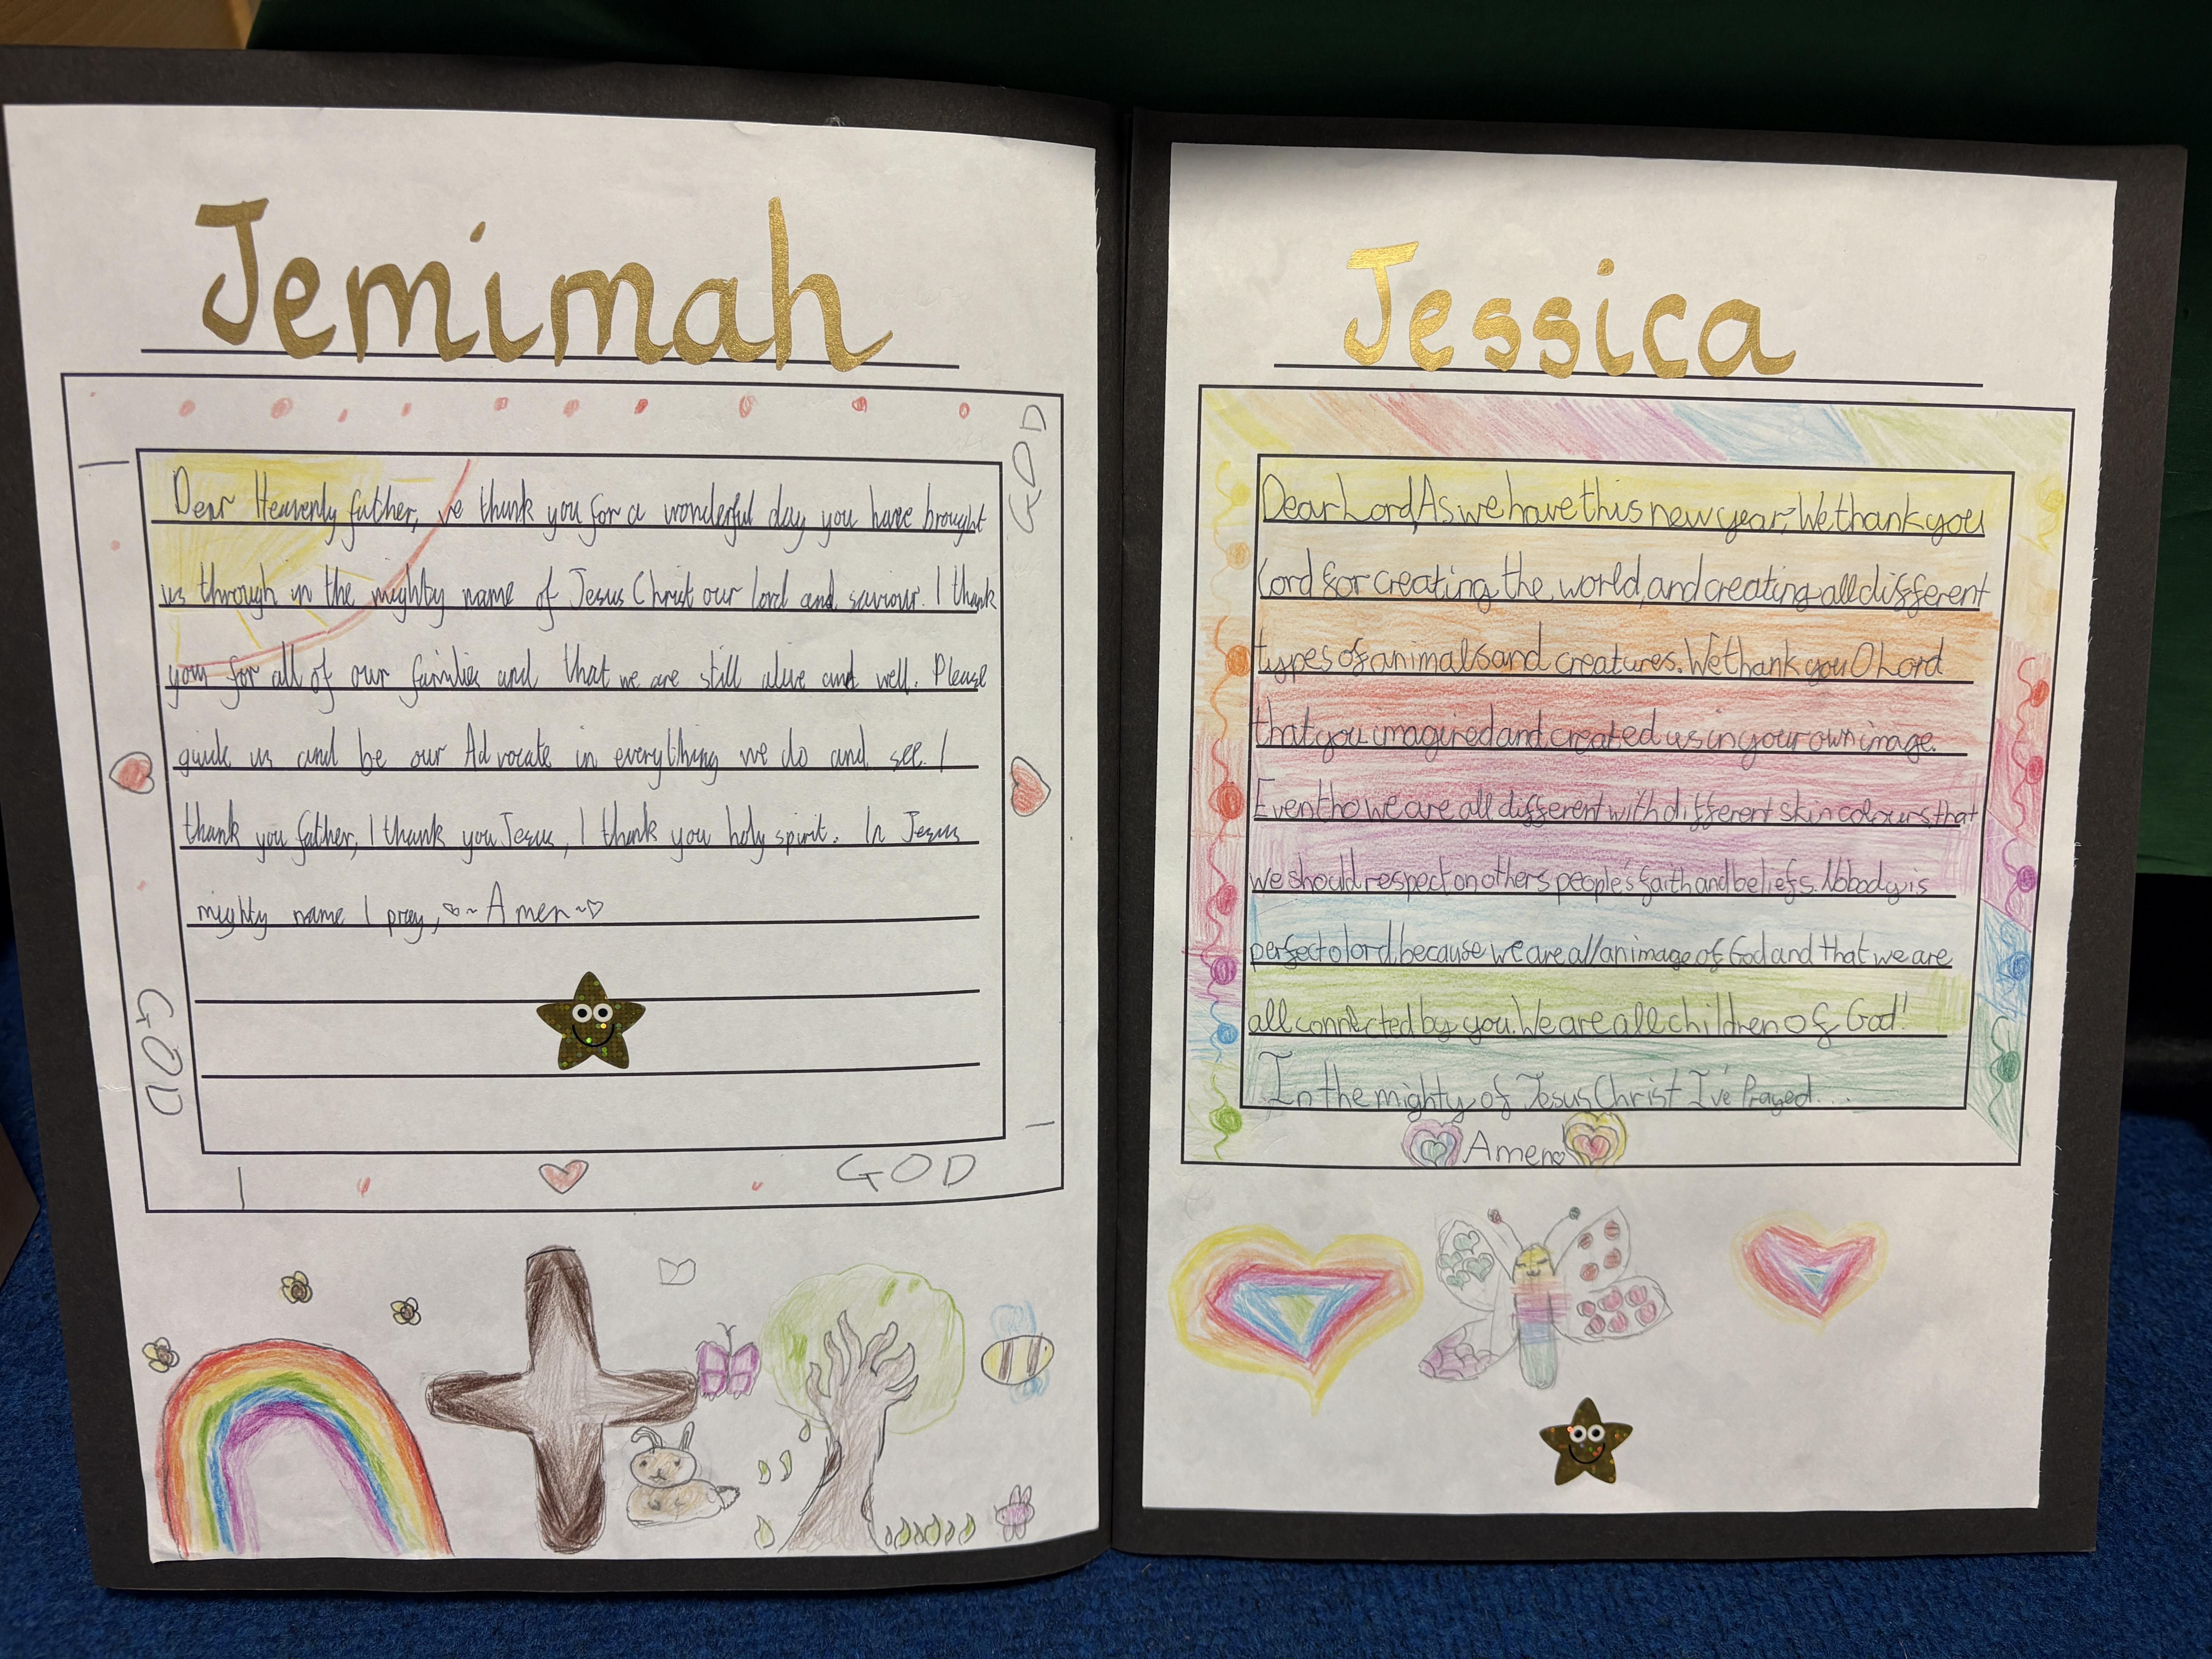 Jemimah
GOD
Dear Heavenly father, we thank you for a wonderful day you have brought
us through in the mighty name of Jesus Christ our lord and saviour. I thank
you for all of our families and that we are still alive and well. Please
guide us and be our Advocate in everything we do and see. I
thank you father, I thank you Jesus, I thank you holy spirit. In Jesus
mighty name I pray, Amen
GOD
GOD
Jessica
Dear Lord, As we have this new year, We thank you
Lord for creating the world, and creating all different
types of animals and creatures. We thank you O Lord
that you imagired and created us in your own image.
Eventho we are all different with different skin colours, that
we should respect on others people's faith and beliefs. Nobody is
perfect o lord, because we are all an image of God and that we are
all connected by you. We are all children of God!
In the mighty of Jesus Christ I've Prayed...
Amen